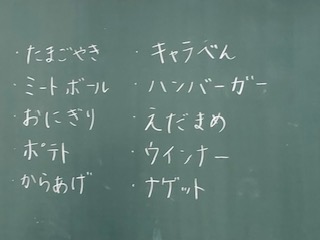 ・たまごやき
・ミートボール
・おにぎり
・ポテト
・からあげ
・キャラべん
・ハンバーガー
・えだまめ
・ウインナー
・ナゲット